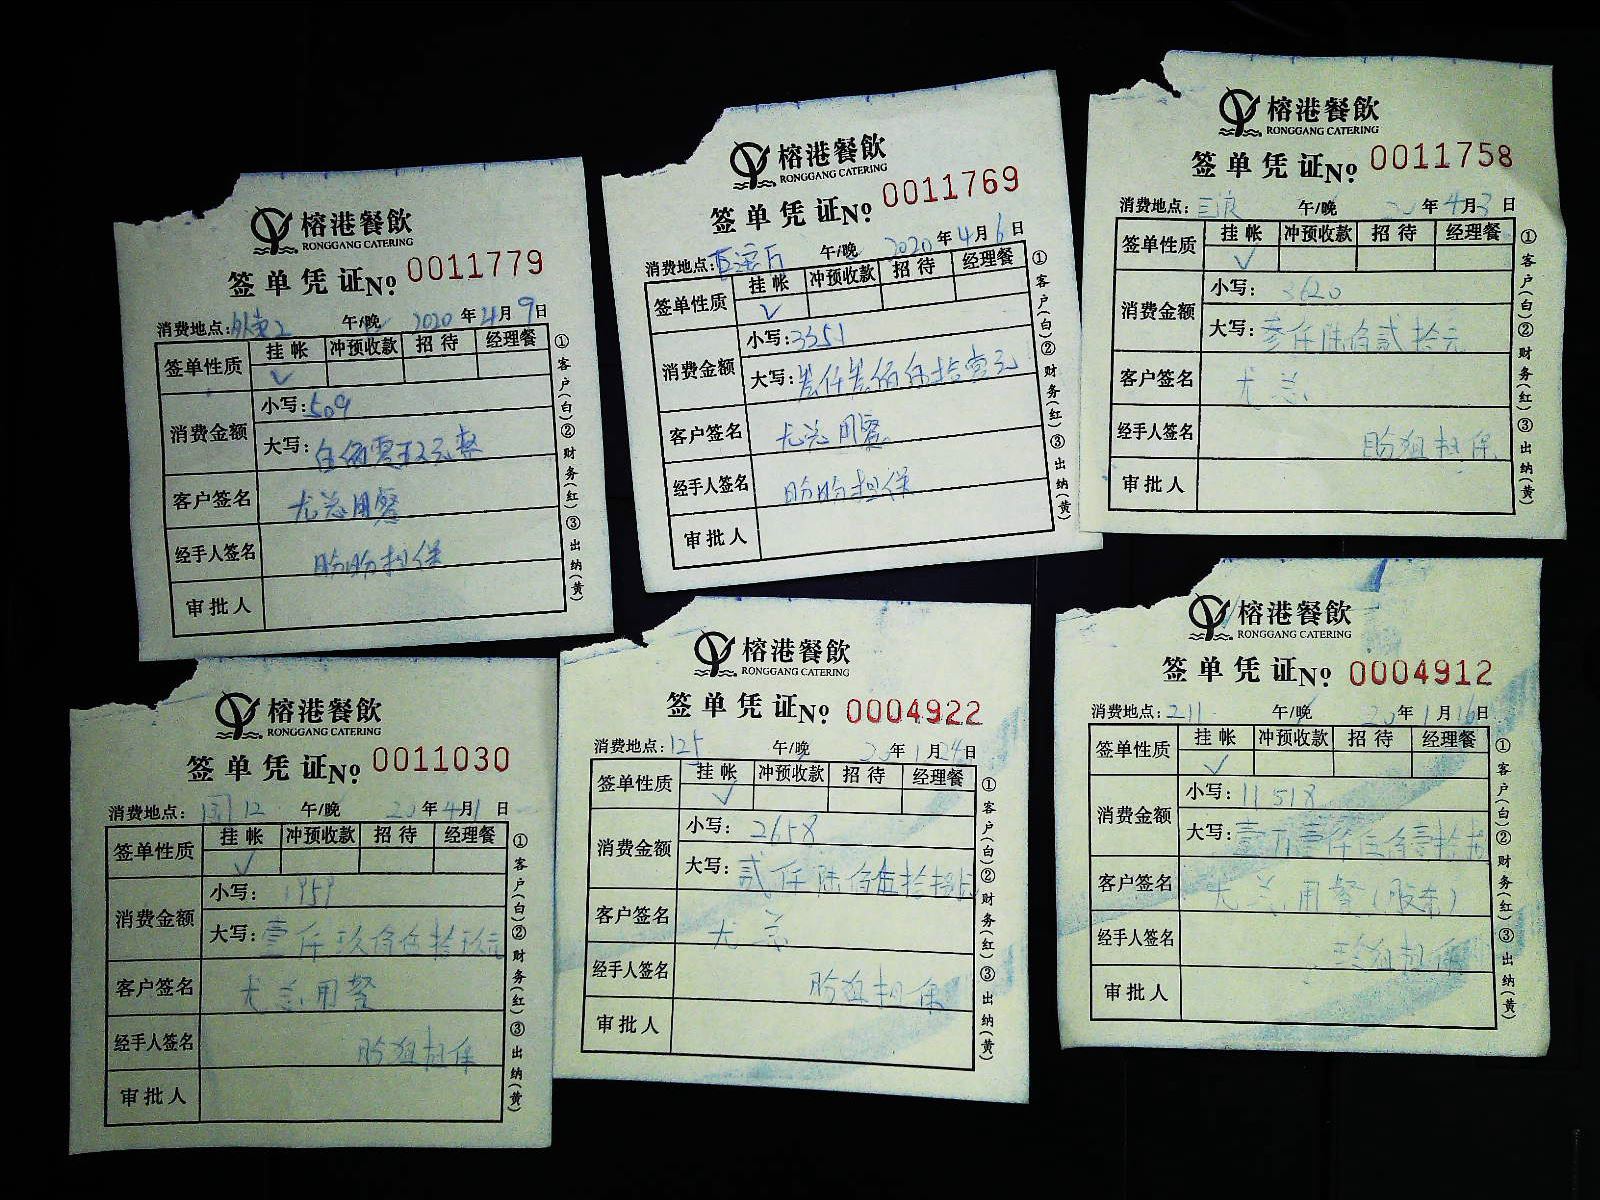 榕港餐飲
RONGGANG CATERING
签单凭证No 0011779
消费地点: 午/晚 2020年4月9日
签单性质 挂帐 冲预收款 招待 经理餐
✓
消费金额 小写:509
大写:伍佰零玖元整
客户签名 尤总用餐
经手人签名 盼盼担保
审批人
①客户(白)②财务(红)③出纳(黄)
榕港餐飲
RONGGANG CATERING
签单凭证No 0011769
消费地点: 午/晚 2020年4月6日
签单性质 挂帐 冲预收款 招待 经理餐
✓
消费金额 小写:3351
大写:叁仟叁佰伍拾壹元
客户签名 尤总用餐
经手人签名 盼盼担保
审批人
①客户(白)②财务(红)③出纳(黄)
榕港餐飲
RONGGANG CATERING
签单凭证No 0011758
消费地点: 午/晚 20年4月3日
签单性质 挂帐 冲预收款 招待 经理餐
✓
消费金额 小写: 3620
大写:叁仟陆佰贰拾元
客户签名 尤总
经手人签名 盼姐担保
审批人
①客户(白)②财务(红)③出纳(黄)
榕港餐飲
RONGGANG CATERING
签单凭证No 0011030
消费地点: 12 午/晚 20年4月1日
签单性质 挂帐 冲预收款 招待 经理餐
✓
消费金额 小写: 1959
大写:壹仟玖佰伍拾玖元
客户签名 尤总用餐
经手人签名 盼姐担保
审批人
①客户(白)②财务(红)③出纳(黄)
榕港餐飲
RONGGANG CATERING
签单凭证No 0004922
消费地点:125 午/晚 20年1月24日
签单性质 挂帐 冲预收款 招待 经理餐
✓
消费金额 小写: 2658
大写:贰仟陆佰伍拾捌元
客户签名 尤总
经手人签名 盼姐担保
审批人
①客户(白)②财务(红)③出纳(黄)
榕港餐飲
RONGGANG CATERING
签单凭证No 0004912
消费地点:211 午/晚 20年1月16日
签单性质 挂帐 冲预收款 招待 经理餐
✓
消费金额 小写:11518
大写:壹万壹仟伍佰壹拾捌
客户签名 尤总用餐(股东)
经手人签名 担保
审批人
①客户(白)②财务(红)③出纳(黄)